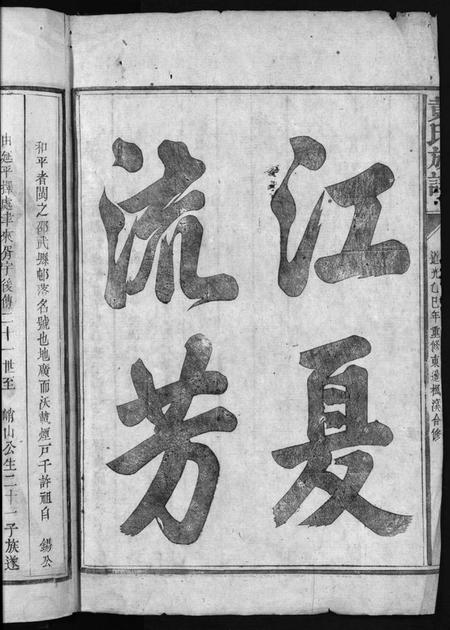 黄氏族譜
道光乙巳年重修東邊楓溪合修
江夏
流芳
和平者閩之邵武縣邨落名號也地廣而沃載煙戸千許祖自 錫公
由延平擇處聿來胥宇後傳二十一世至 館山公生二十一子族遂